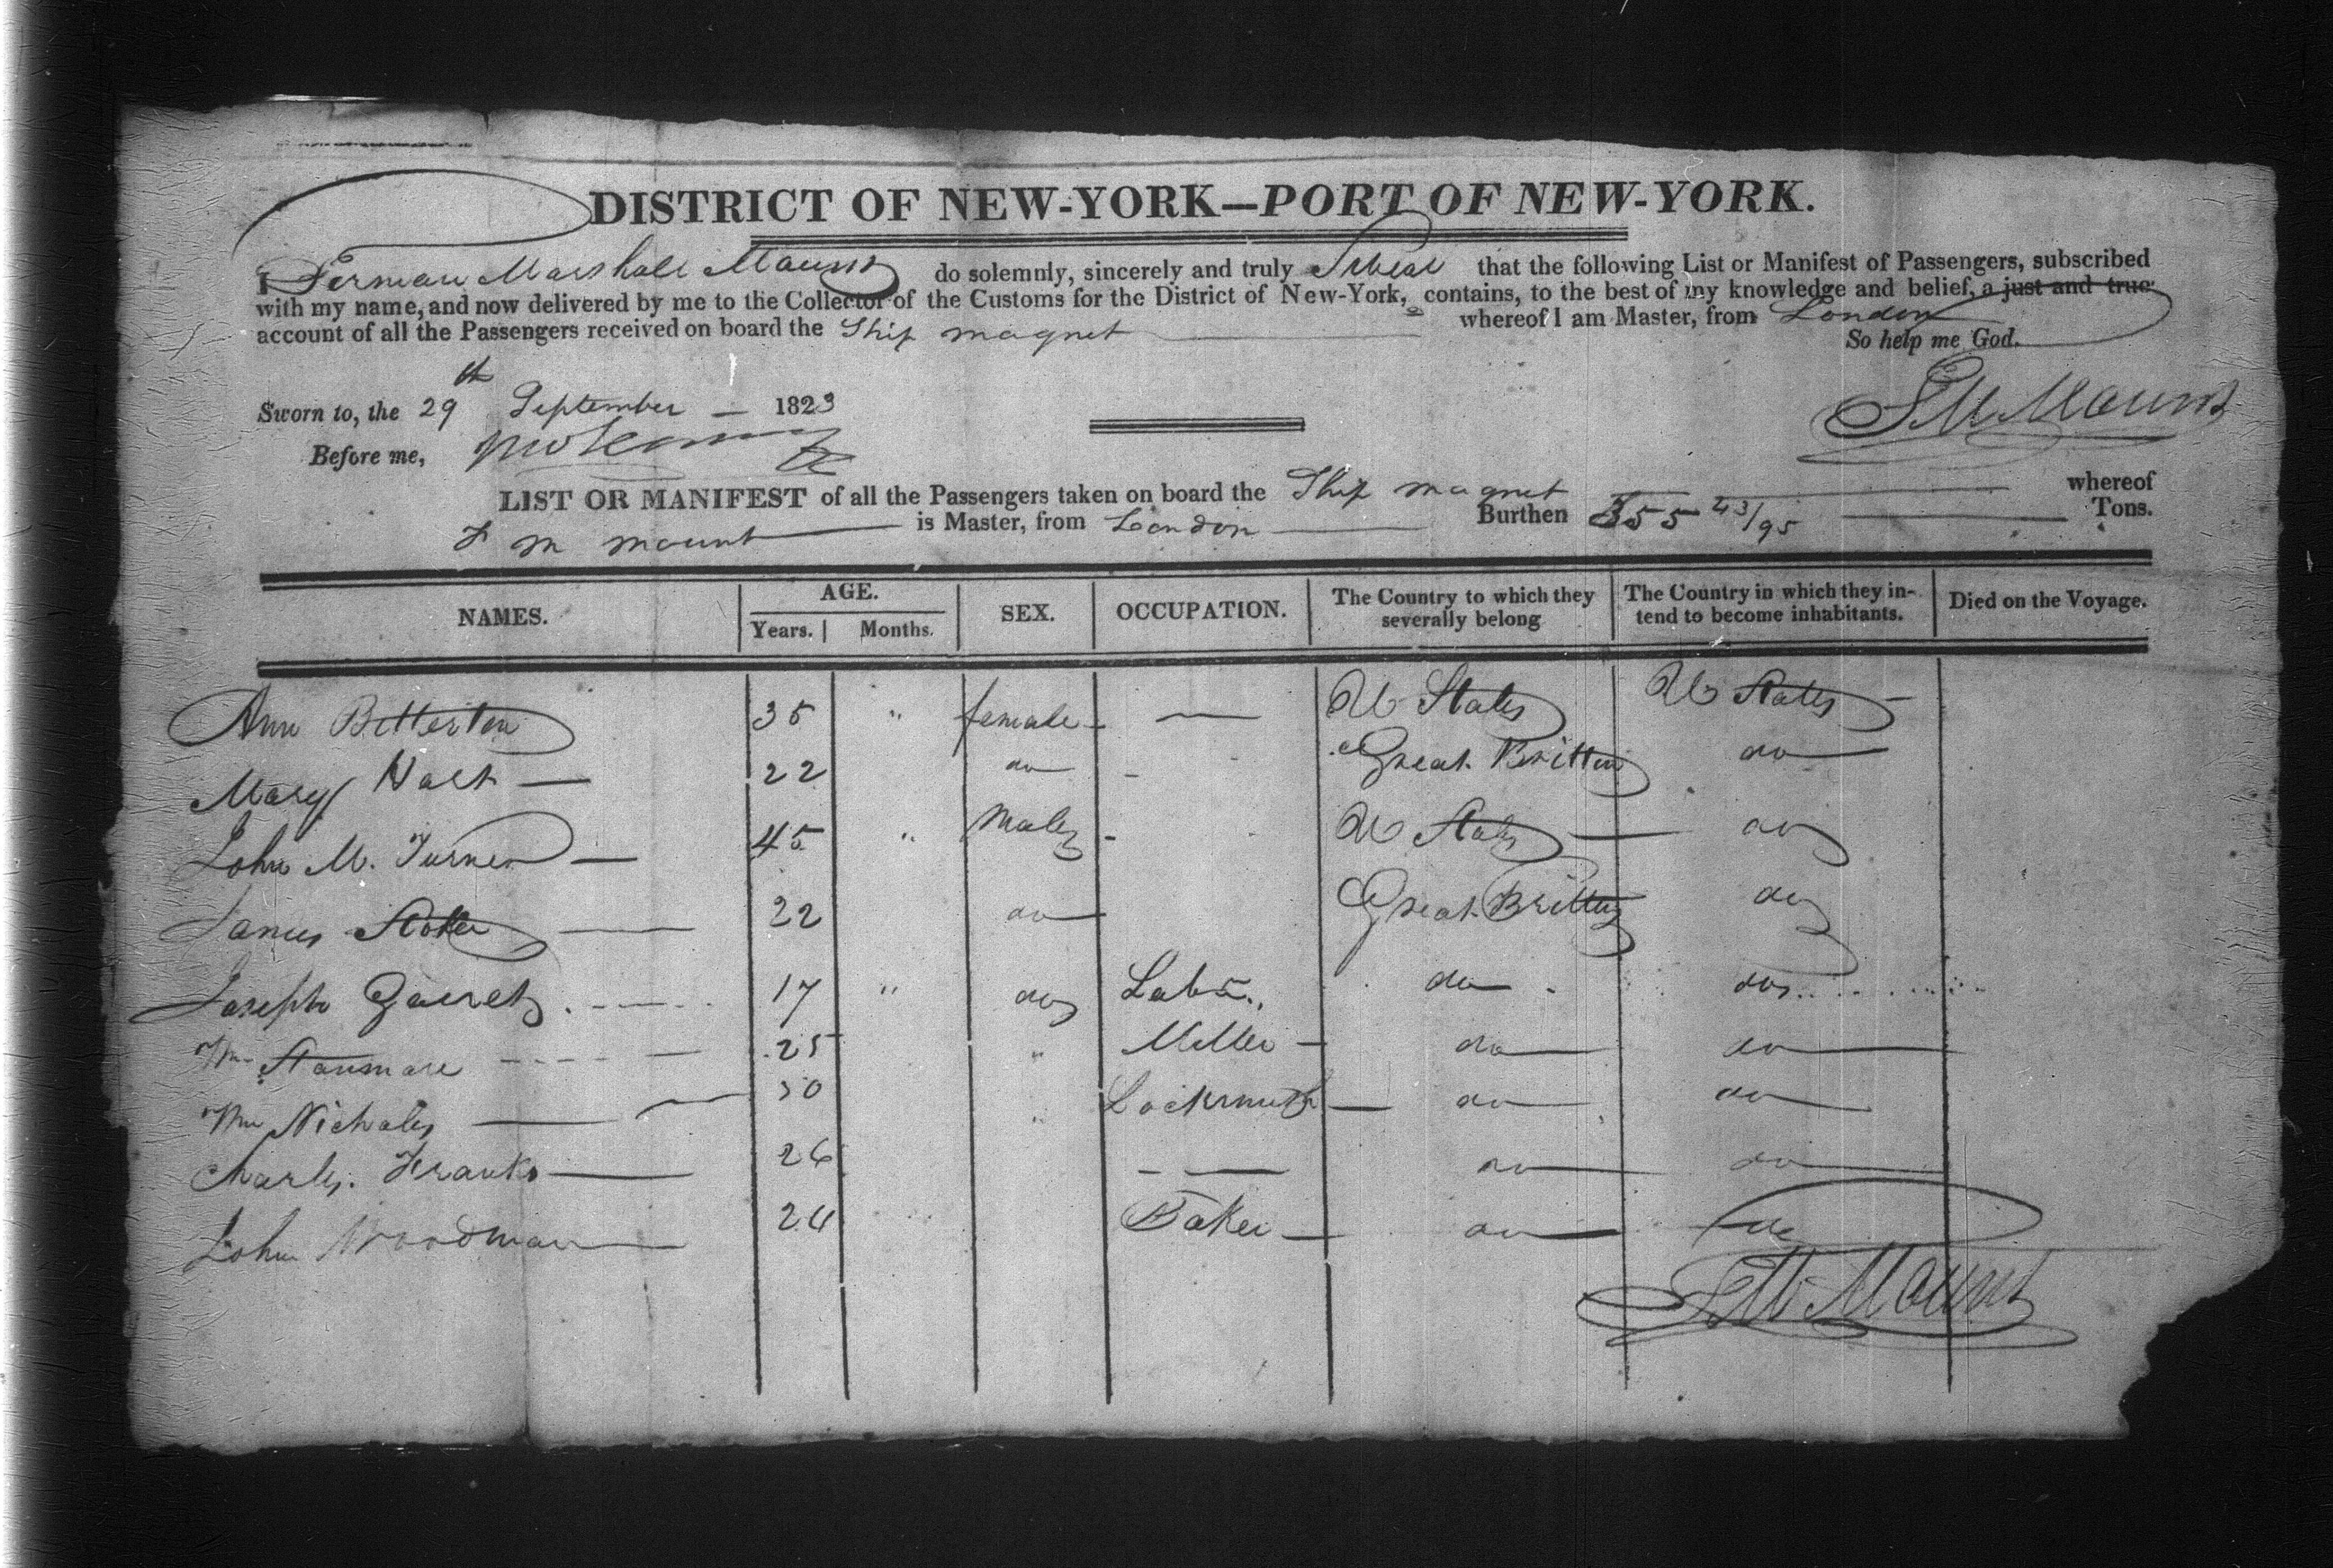 DISTRICT OF NEW-YORK—PORT OF NEW-YORK.
I Furman Marshall Mount do solemnly, sincerely and truly Swear that the following List or Manifest of Passengers, subscribed
with my name, and now delivered by me to the Collector of the Customs for the District of New-York, contains, to the best of my knowledge and belief, a just and true
account of all the Passengers received on board the Ship magnet whereof I am Master, from London
So help me God.
Sworn to, the 29th September 1823
F M Mount
Before me,
LIST OR MANIFEST of all the Passengers taken on board the Ship magnet whereof
F m mount is Master, from London Burthen 355 43/95 Tons.
NAMES. AGE. SEX. OCCUPATION. The Country to which they severally belong The Country in which they intend to become inhabitants. Died on the Voyage.
Years. Months.
Ann Betterton 35 " female — U States U States
Mary 22 do - Great Britten do
John M. Turner 45 " Male - U States do
James 22 do Great Britten do
Joseph 17 " do Labr. do do
Wm Stanmore 25 " Miller do do
Wm Nicholes 30 " Locksmith do do
Charles Franks 26 — do do
John Woodman 24 Baker do do
F M Mount